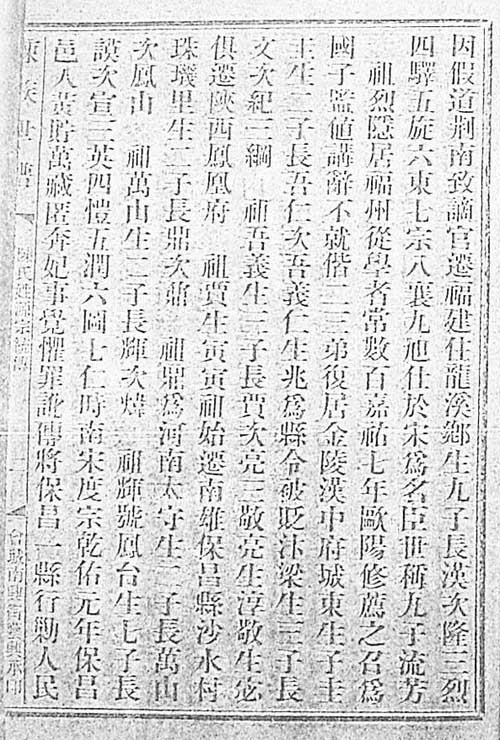 因假道荆南致謫官遷福建仕龍溪鄉生九子長漢次隆三烈
四驛五旋六東七宗八襄九旭仕於宋爲名臣世稱九子流芳
祖烈隱居福州從學者常數百嘉祐七年歐陽修薦之召爲
國子監値講辭不就偕二三弟復居金陵漢中府城東生子主
主生二子長吾仁次吾義仁生兆爲縣令被貶汴梁生三子長
文次紀三綱 祖吾義生三子長賈次亮三敬亮生淳敬生宓
俱遷陜西鳳凰府 祖賈生寅寅祖始遷南雄保昌縣沙水村
珠璣里生二子長鼎次鼐 祖鼎爲河南太守生二子長萬山
次鳳山 祖萬山生二子長輝次煒 祖輝號鳳台生七子長
謨次宣三英四愷五潤六圖七仁時南宋度宗乾佑元年保昌
邑人黃貯萬藏匿奔妃事覺懼罪訛傳將保昌一縣行勦人民
陳族世譜
陳氏姓源宗